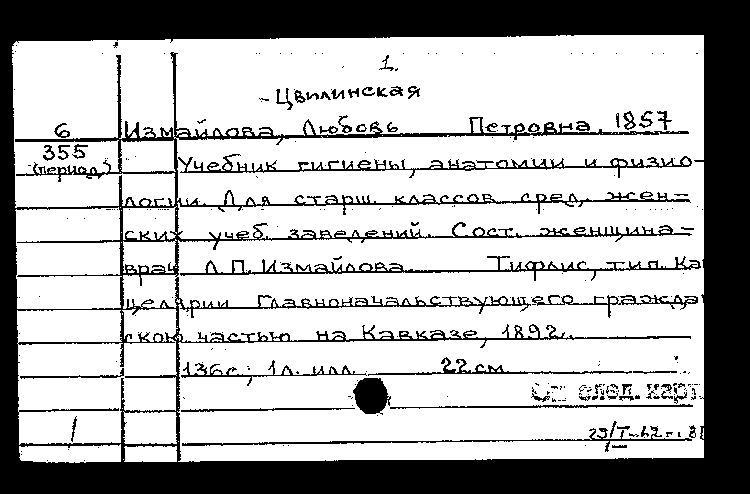 1.
-Цвилинская
6 Измайлова, Любовь Петровна. 1857
355 Учебник гигиены, анатомии и физио-
(период.)
логии. Для старш. классов сред. жен-
ских учеб. заведений. Сост. женщина-
врач Л.П. Измайлова. Тифлис, тип. Кан
целярии Главноначальствующего граждан
скою частью на Кавказе, 1892.
136 с.; 1 л. илл. 22 см.
См след. карт.